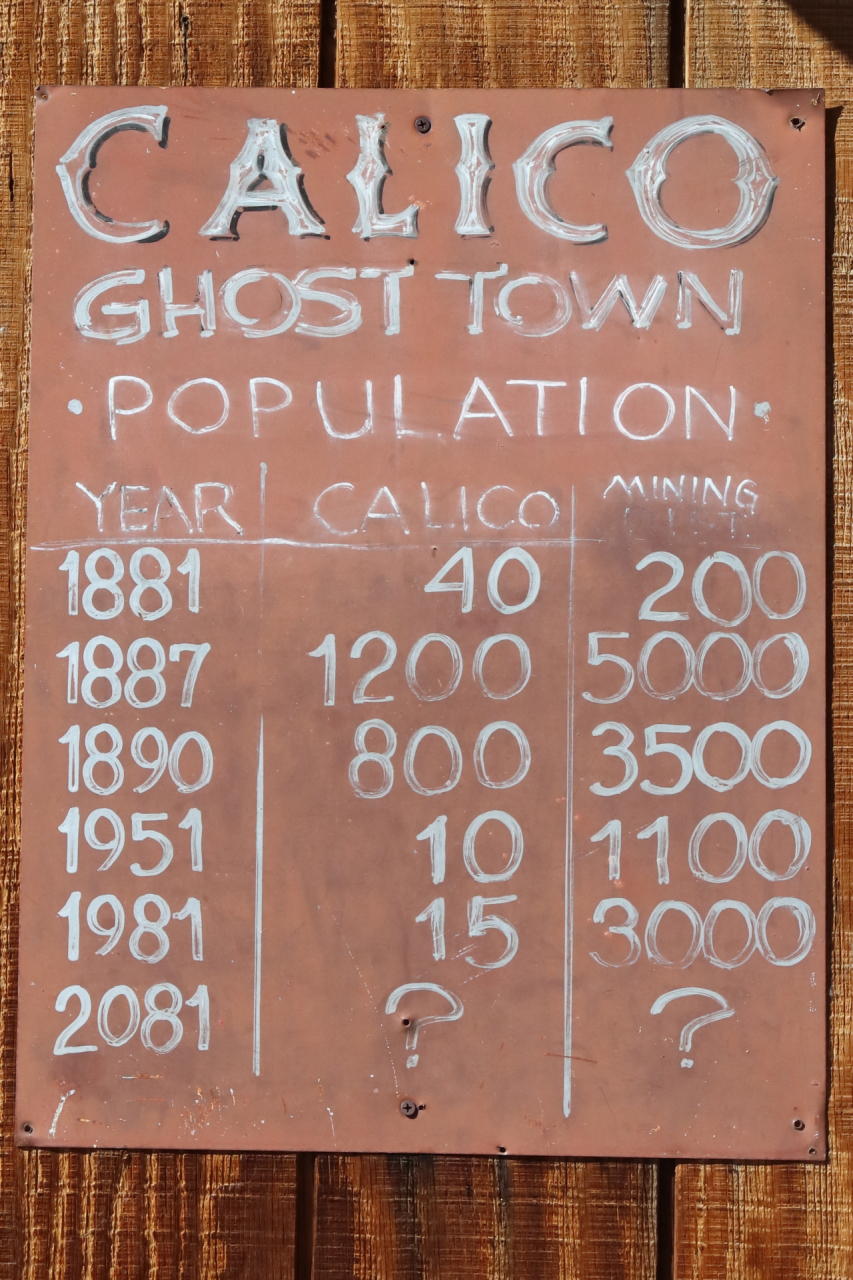 CALICO
GHOST TOWN
• POPULATION •
YEAR CALICO MINING
DIST.
1881 40 200
1887 1200 5000
1890 800 3500
1951 10 1100
1981 15 3000
2081 ? ?